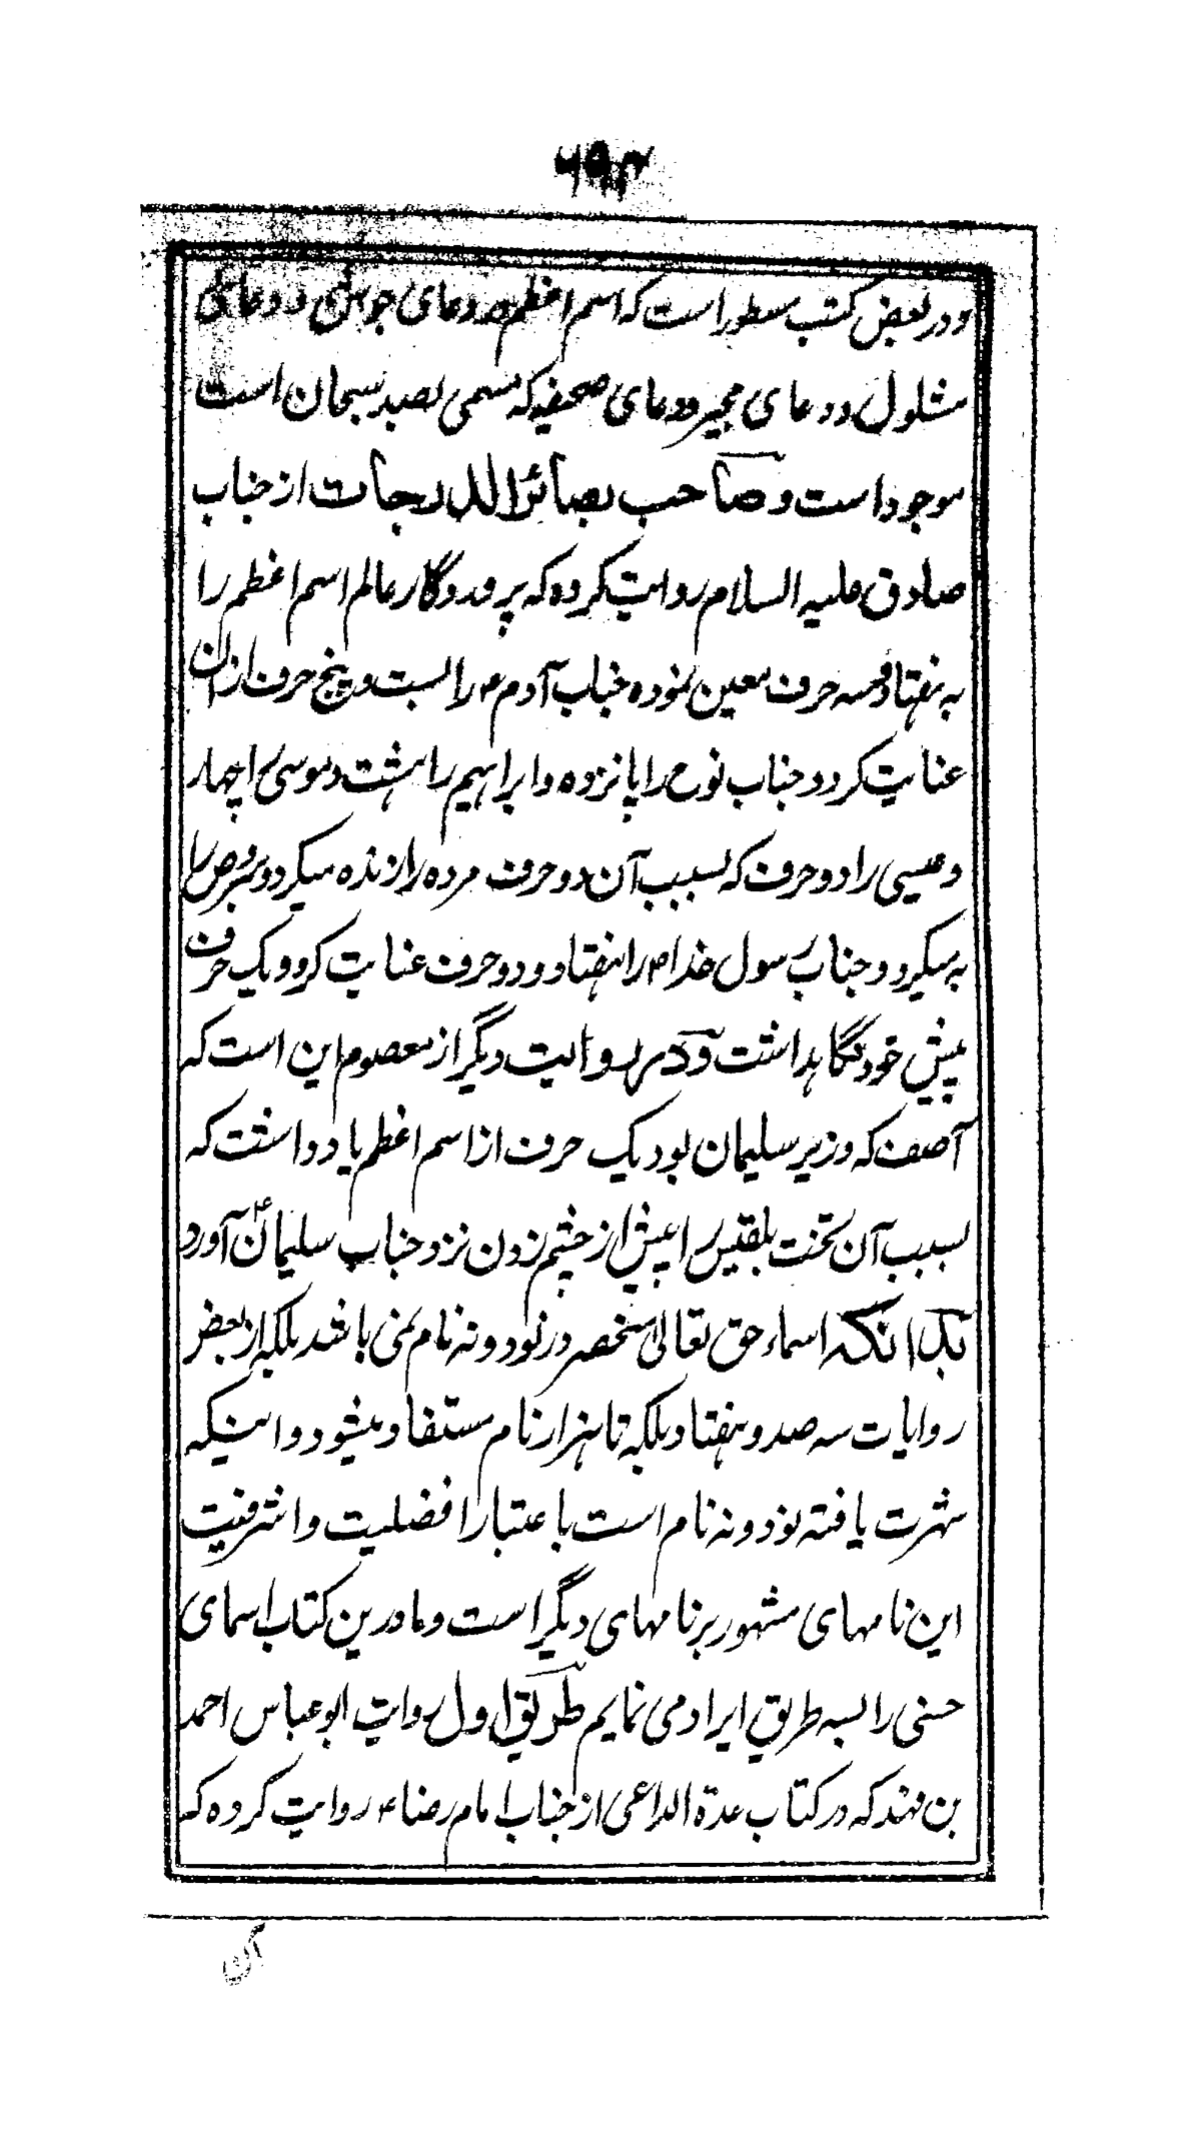 ۶۹۳
و در بعض کتب سطور است که اسم اعظم در دعای جوشن و دعای
مشلول و دعای مجیر و دعای صحیفه که مسمی بصد سبحان است
موجود است و صاحب بصائر الدرجات از جناب
صادق علیه السلام روایت کرده که پروردگار عالم اسم اعظم را
به هفتاد و سه حرف معین نموده جناب آدم ع را بست و پنج حرف ازان
عنایت کرد و جناب نوح را پانزده و ابراهیم را هشت و موسی را چهار
و عیسی را دو حرف که بسبب آن دو حرف مرده را زنده میکرد و مبروص را
به میکرد و جناب رسول خدا ص را هفتاد و دو حرف عنایت کرد و یک حرف
پیش خود نگاهداشت و در روایت دیگر از معصوم این است که
آصف که وزیر سلیمان بود یک حرف از اسم اعظم یاد داشت که
بسبب آن تخت بلقیس را پیش از چشم زدن نزد جناب سلیمانؑ آورد
بدانکه اسماء حق تعالی منحصر در نود و نه نام نمی باشد بلکه از بعض
روایات سه صد و هفتاد بلکه تا هزار نام مستفاد میشود و اینکه
شهرت یافته نود و نه نام است با عتبار افضلیت و اشرفیت
این نامهای مشهور بر نامهای دیگر است و ما درین کتاب اسمای
حسنی را بسه طریق ایراد می نمایم طریق اول روایت ابو عباس احمد
بن فهد که در کتاب عدة الداعی از جناب امام رضا ع روایت کرده که
آن